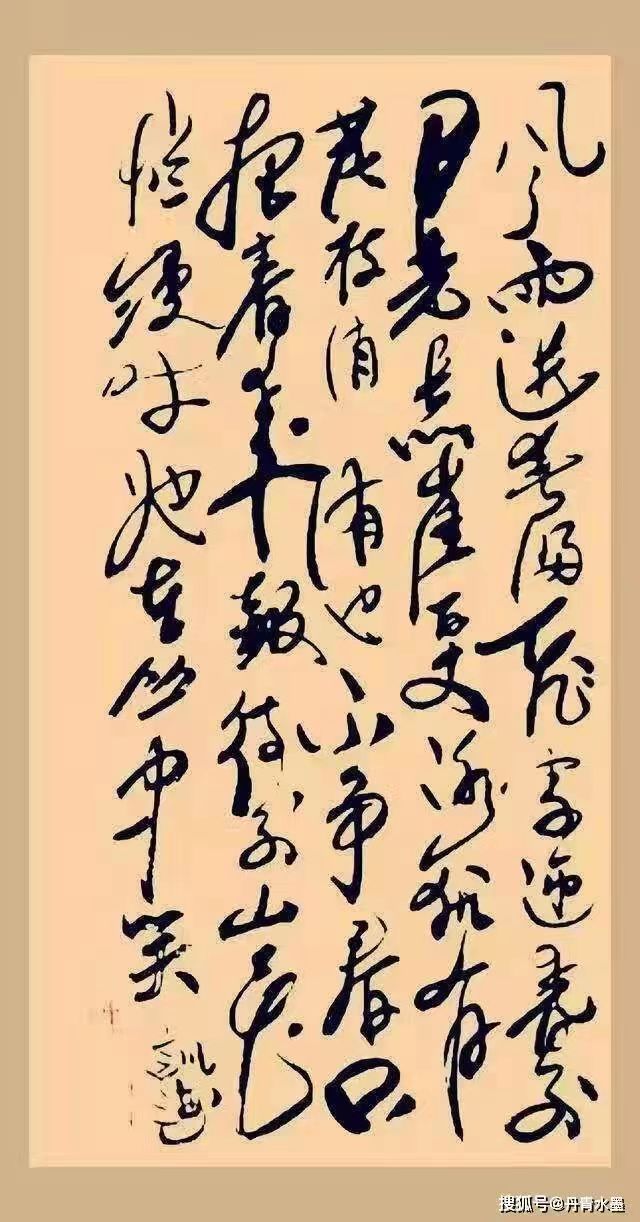 风雨送春归飞雪迎春到
已是悬崖百丈冰犹有
花枝俏俏也不争春只
把春来报待到山花
烂漫时她在丛中笑
搜狐号@丹青水墨